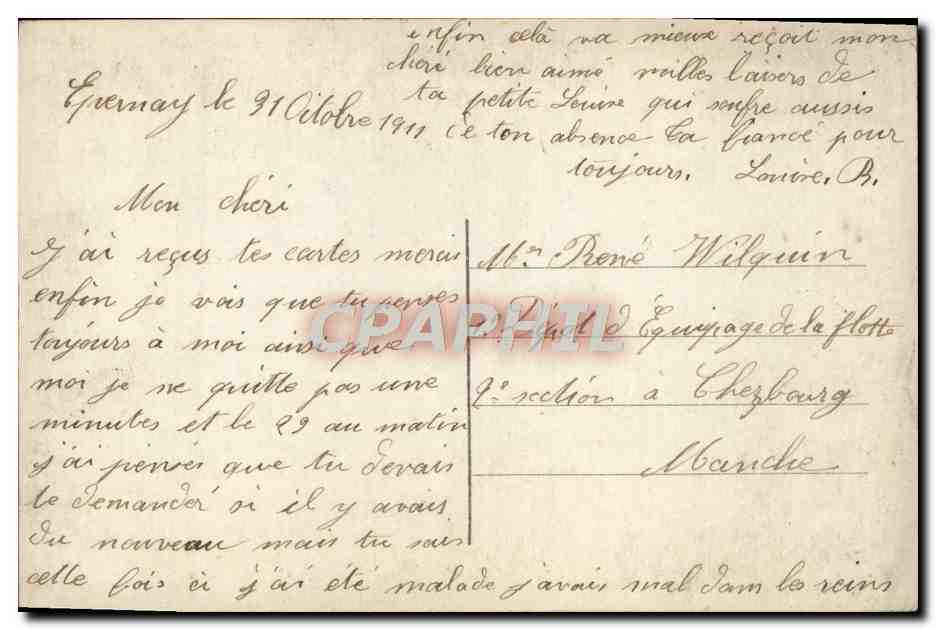 Epernay le 31 Octobre 1911
Mon chéri
J'ai reçus tes cartes merci
enfin je vois que tu penses
toujours à moi ainsi que
moi je ne quitte pas une
minutes et le 29 au matin
j'ai penser que tu devais
te demander si il y avais
du nouveau mais tu sais
cette fois ci j'ai été malade j'avais mal dans les reins
enfin celà va mieux reçoit mon
chéri bien aimé milles baisers de
ta petite Louise qui soufre aussis
de ton absence Ta fiancé pour
toujours. Louise. R.
Mr René Wilquin
1er Dépot d'Équipage de la flotte
2e section à Cherbourg
Manche
CPAPHIL